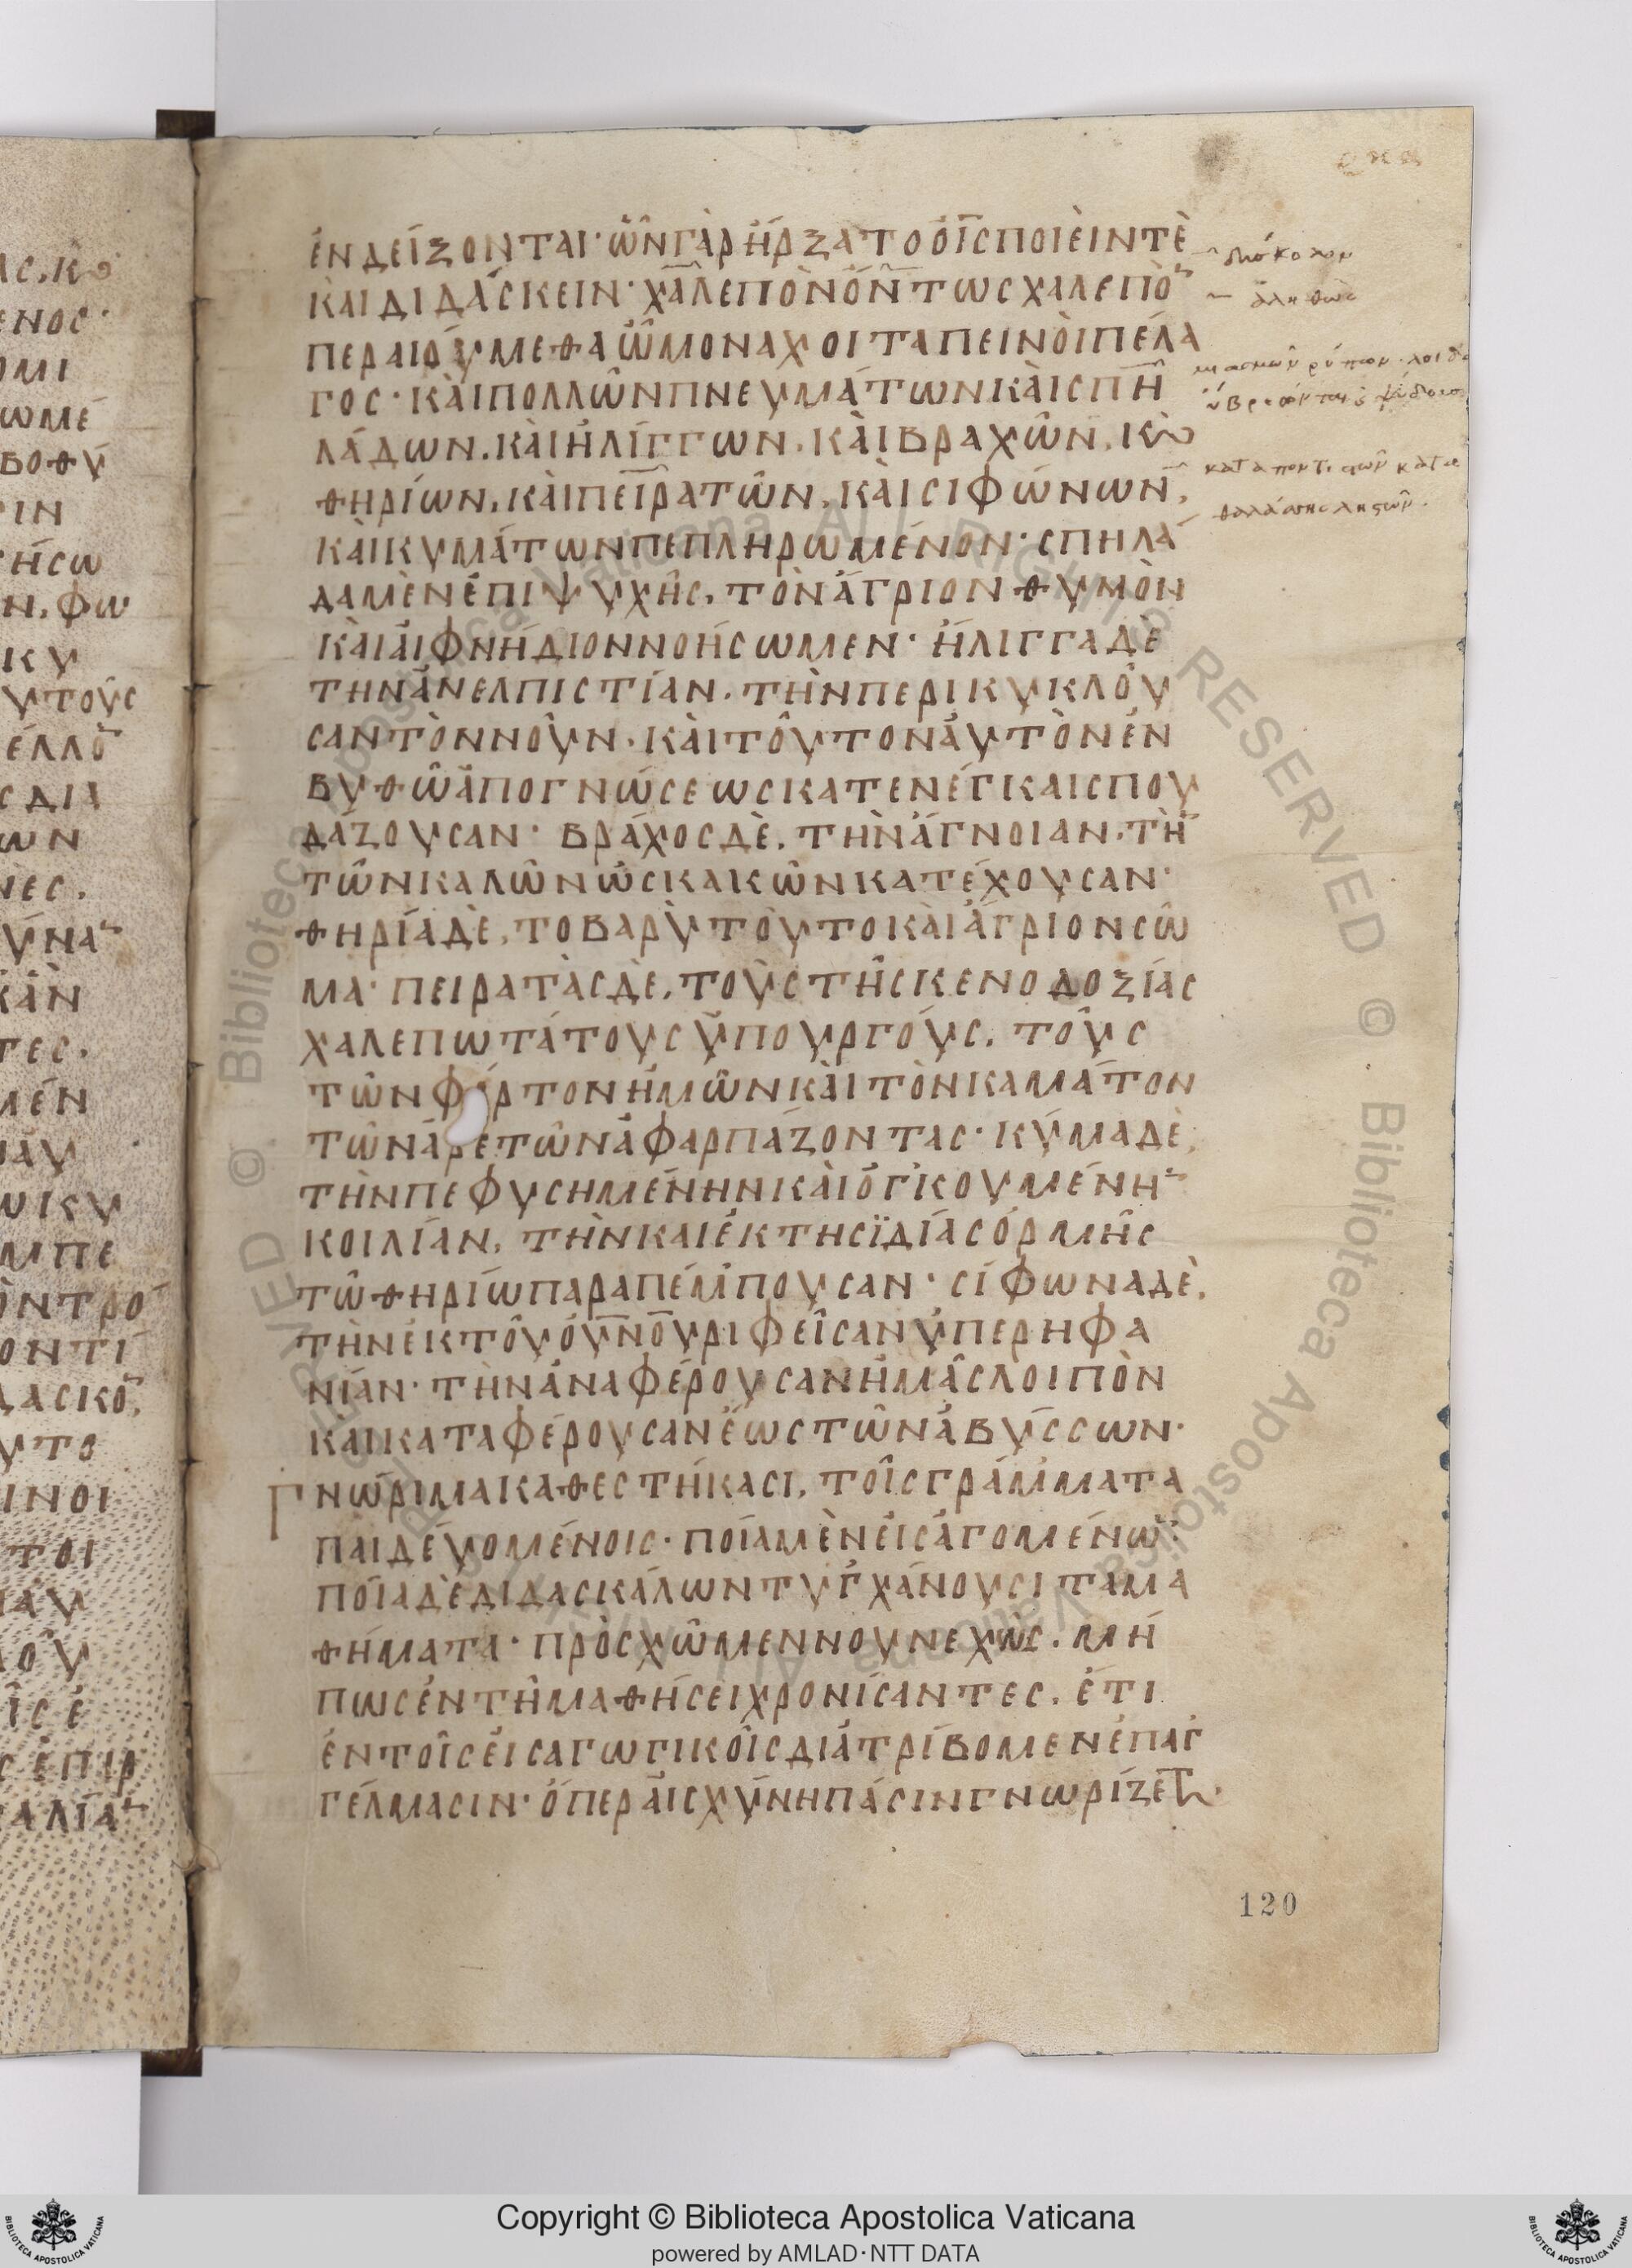 ἐνδείξονται· ὧν γὰρ ἤρξατο ὁ ἰ̅ς̅ ποιεῖν τὲ
καὶ διδάσκειν· χαλεπὸν ὄντως χαλεπὸ
περαιούμεθα ὦ μοναχοι ταπεινὸι πέλα
γος· κὰι πολλῶν πνευμάτων κὰι σπη
λάδων. κὰι ἠλίγγων, κὰι βραχῶν, κ
θηρίων, κὰι πειρατῶν, κὰι σιφώνων,
κὰι κυμάτων πεπληρωμένον· σπηλά
δα μὲν ἐπι ψυχῆς, τὸν ἄγριον θυμὸν
κὰι ἀιφνήδιον νοήσωμεν· ἤλιγγα δὲ
την ἀνελπιστίαν. τὴν περικυκλοῦ
σαν τὸν νοῦν. κὰι τοῦτον ἀυτὸν ἐν
βυθῶ ἀπογνώσεως κατενέγκαι σπου
δάζουσαν· βράχος δὲ, τὴν ἄγνοιαν. τὴ
τῶν καλῶν ὡς κακῶν κατέχουσαν·
θηρία δὲ, το βαρὺ τοῦτο κὰι ἄγριον σῶ
μα· πειρατὰς δὲ, τοὺς τῆς κενοδοξίας
χαλεπωτάτους ὑπουργούς, τοὺς
τῶν φόρτον ἡμῶν κὰι τὸν καματον
τῶν ἀρετῶν ἀφαρπάζοντας· κύμα δὲ,
τὴν πεφυσημένην κὰι ὀγκουμένη
κοιλίαν, τὴν και ἐκ της ϊδίας ὁρμῆς
τῶ θηρίω παραπέμπουσαν· σίφωνα δὲ,
τὴν ἐκ τοῦ ο̅υ̅ν̅ο̅υ̅ ριφεῖσαν ὑπερηφα
νίαν· τὴν ἀναφέρουσαν ἡμᾶς λοιπὸν
και καταφέρουσαν ἕως τῶν ἀβύσσων·
Γνώριμα καθεστήκασι, τοῖς γράμματα
παιδευομένοις· ποῖα μὲν εἰσαγομένων·
ποῖα δὲ διδασκάλων τυγχάνουσι τα μα
θήματα· πρὸσχῶμεν νουνεχῶς. μή
πως ἐν τῆ μαθήσει χρονίσαντες. ἔτι
ἐν τοῖς εἰσαγωγικοῖς διατρίβομεν ἐπαγ
γέλμασιν· ὅπερ αἰσχύνη πάσιν γνωρίζετ
δύσκολον
ἀληθῶς
καταποντιστῶν κατα
θαλάσσης ληστῶν.
120
Copyright © Biblioteca Apostolica Vaticana
powered by AMLAD·NTT DATA